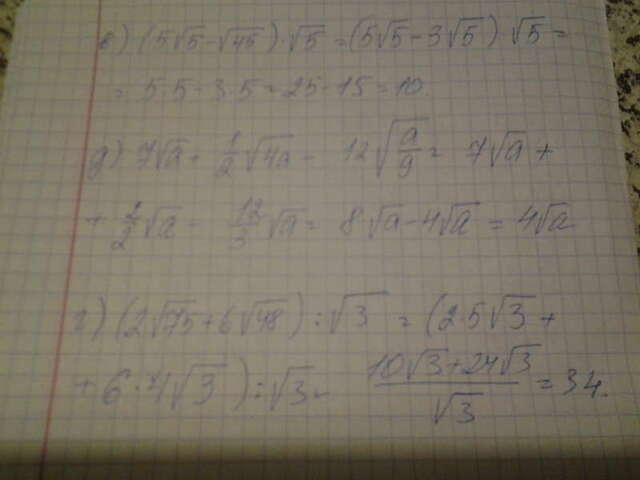 в) (5√5-√45)·√5 = (5√5-3√5)·√5 =
= 5·5-3·5 = 25-15 = 10.
д) 7√a + 1/2 √4a - 12√(a/9) = 7√a +
+ 2/2 √a - 12/3 √a = 8√a - 4√a = 4√a
г) (2√75+6√48) : √3 = (2·5√3 +
+ 6·4√3) : √3 = (10√3+24√3)/√3 = 34.